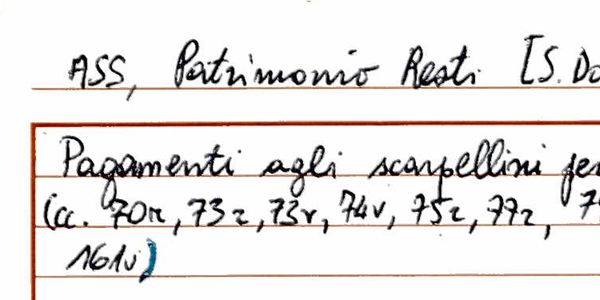 ASS, Patrimonio Resti [S. Do
Pagamenti agli scarpellini per
(cc. 70r, 73r, 73v, 74v, 75r, 77r, 7
161v)